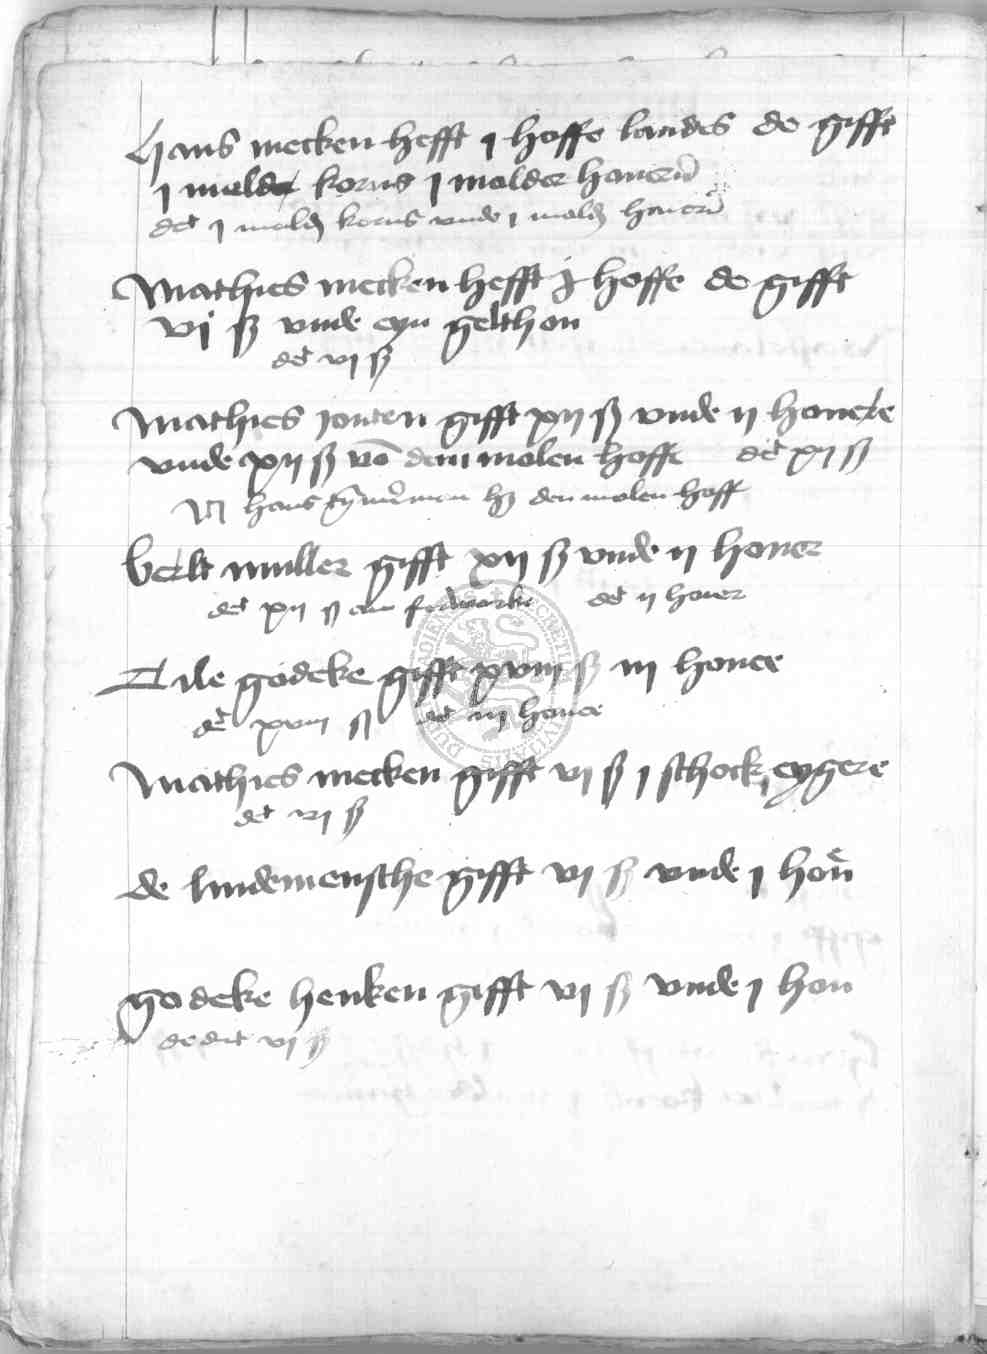 hans mecken hefft j hoffe landes de gifft
j molder korns j molder hauern
det j mold korns vnde j mold hauern
Mathies mecken hefft j hoffe de gifft
vj ß vnde eyn gelthon
det vj ß
Mathies Jonten gifft xij ß vnde ij honere
vnde xij ß vō dem molen hoffe det xij ß
hans den molen hoff
berlt muller gifft xij ß vnde ij honer
det xij ß det ij honer
Tile godeke gifft xviij ß iij honer
det xviij ß det iij honer
Mathies mecken gifft vj ß j schock eygere
det vj ß
de lindemensche gifft vj ß vnde j hon
godeke henken gifft vj ß vnde j hon
dedit vj ß